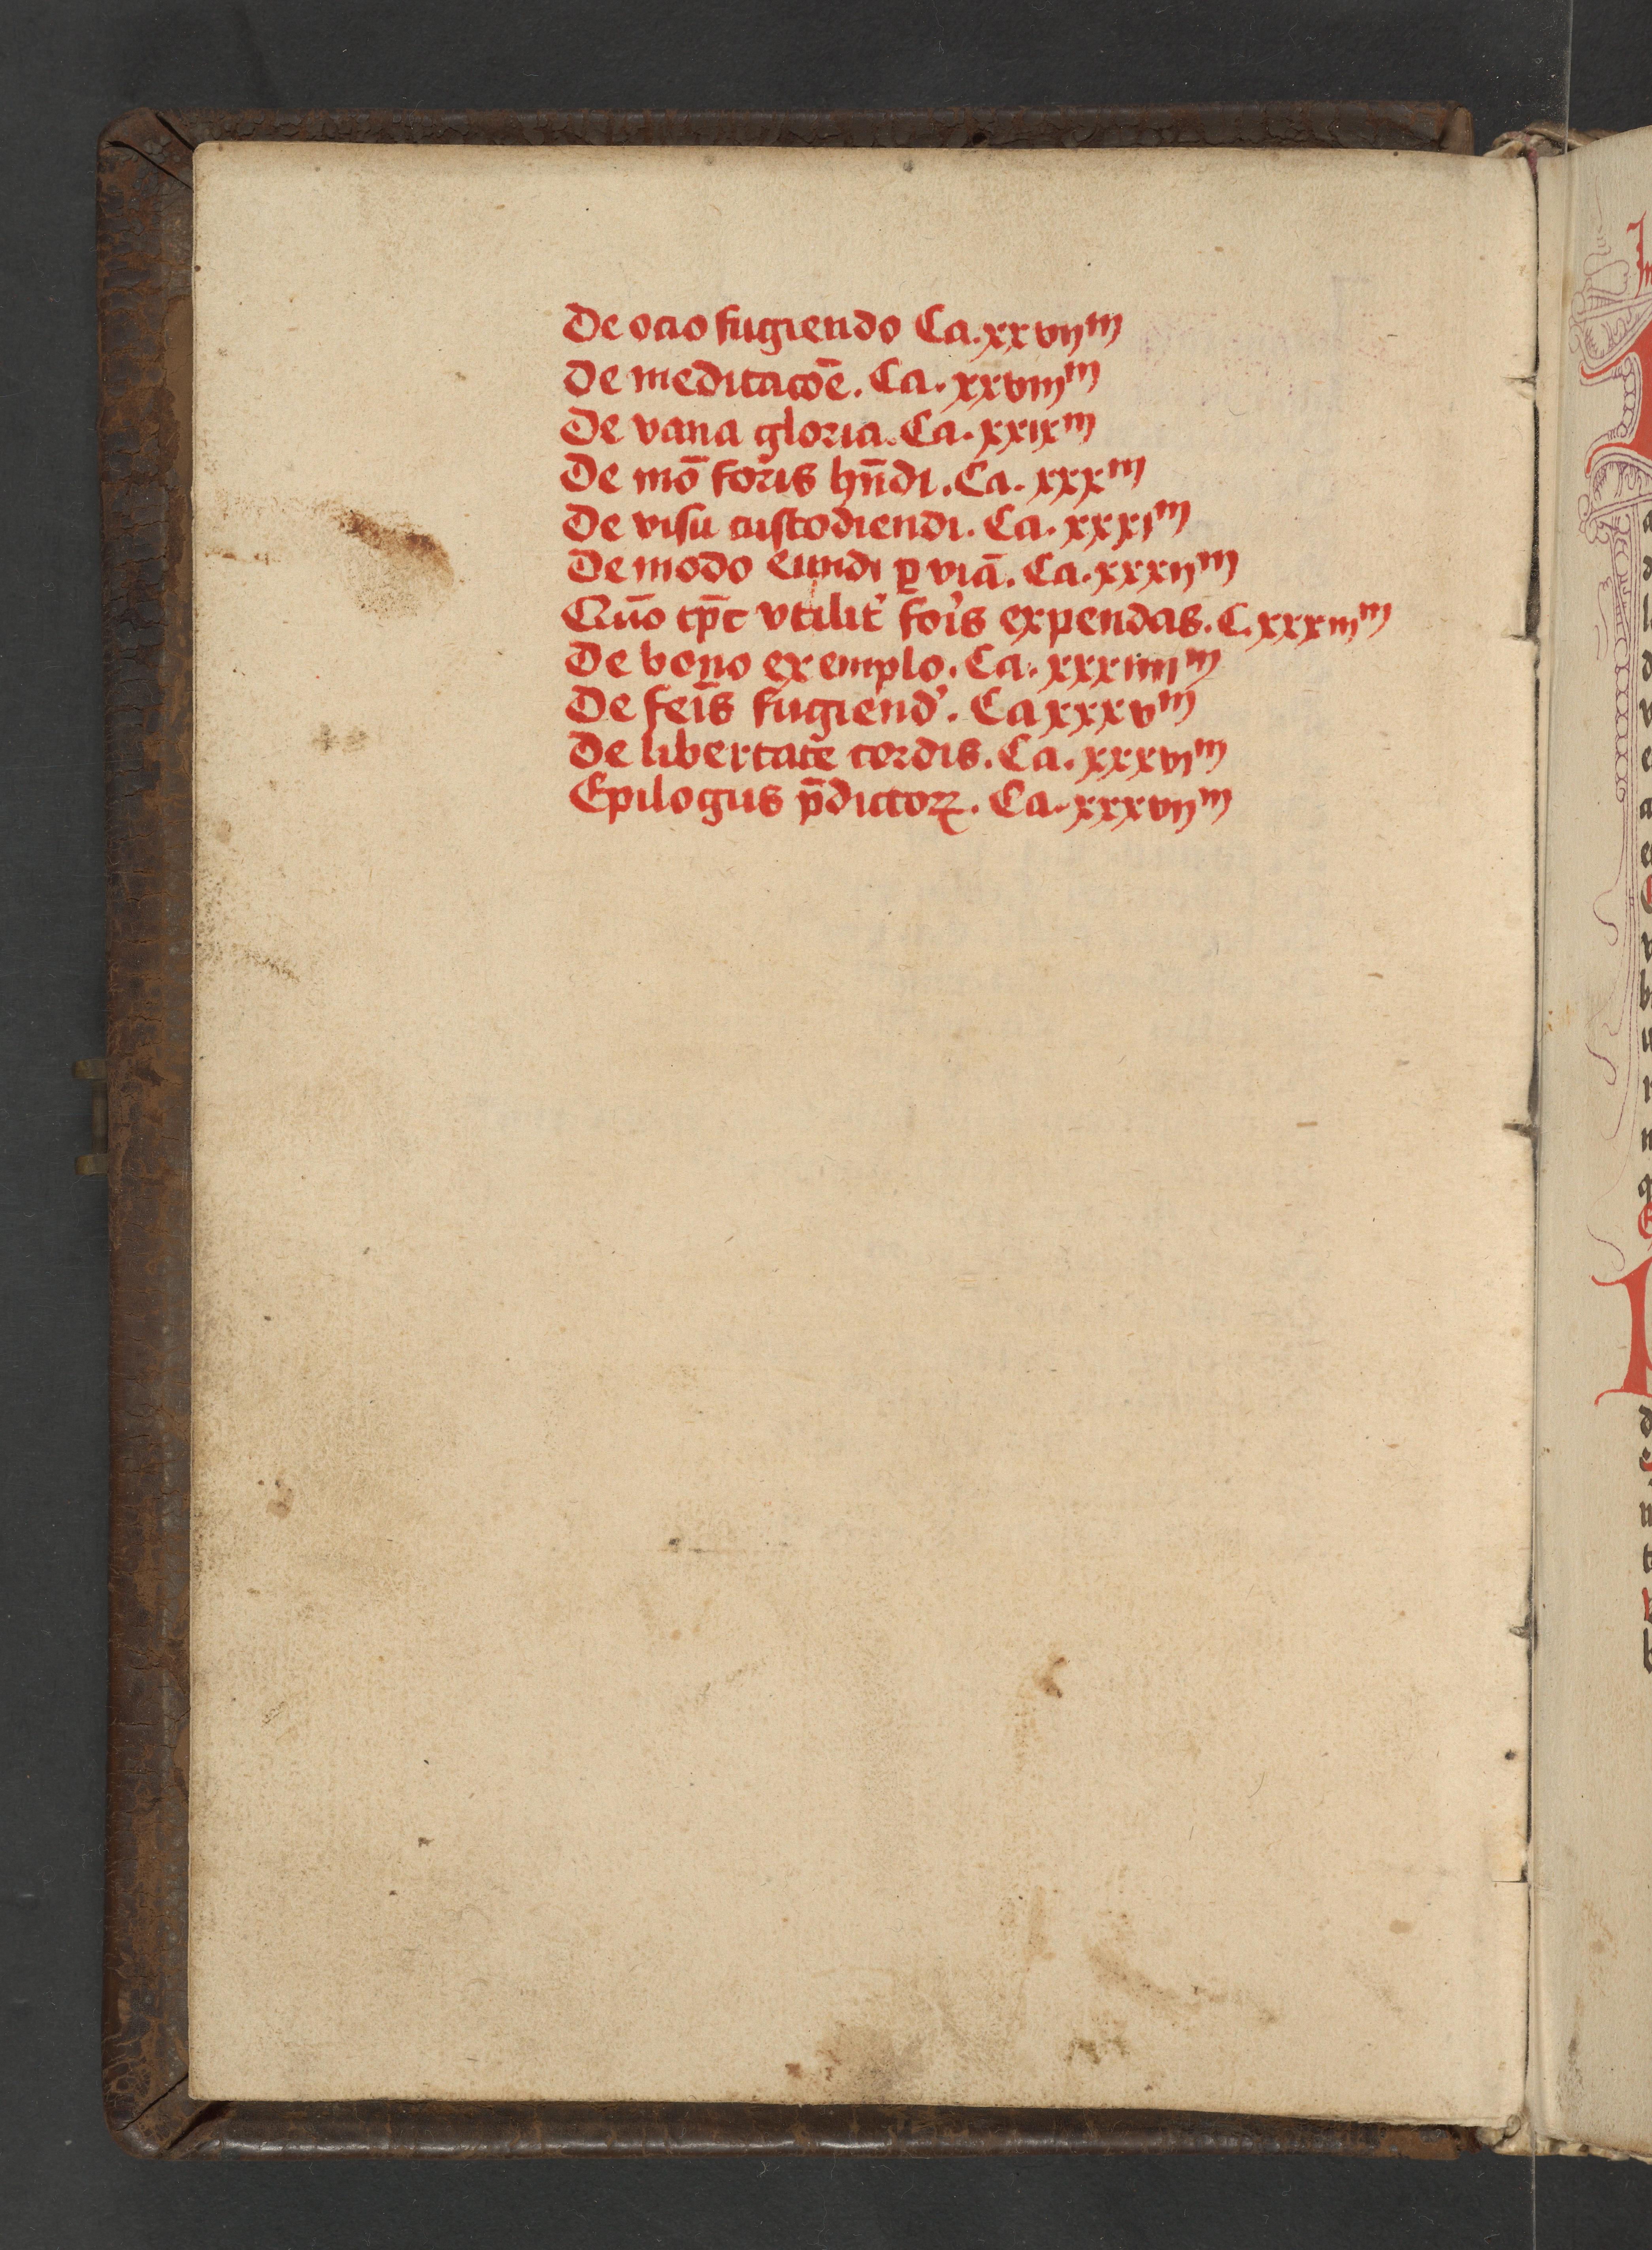 De ocio fugiendo Ca. xxvijᵐ
De meditacōe. Ca. xxviijᵐ
De vana gloria. Ca. xxixᵐ
De mō foris hn̄di. Ca. xxxᵐ
De visu custodiendi. Ca. xxxiᵐ
De modo eundi ꝑ viā. Ca. xxxijᵐ
Quō tp̄c vtilit' foi's expendas. C. xxxiijᵐ
De bono exemplo. Ca. xxxiiijᵐ
De fei̅s fugiend'. Ca xxxvᵐ
De libertate cordis. Ca. xxxviᵐ
Epilogus p̄dictoꝝ. Ca. xxxvijᵐ